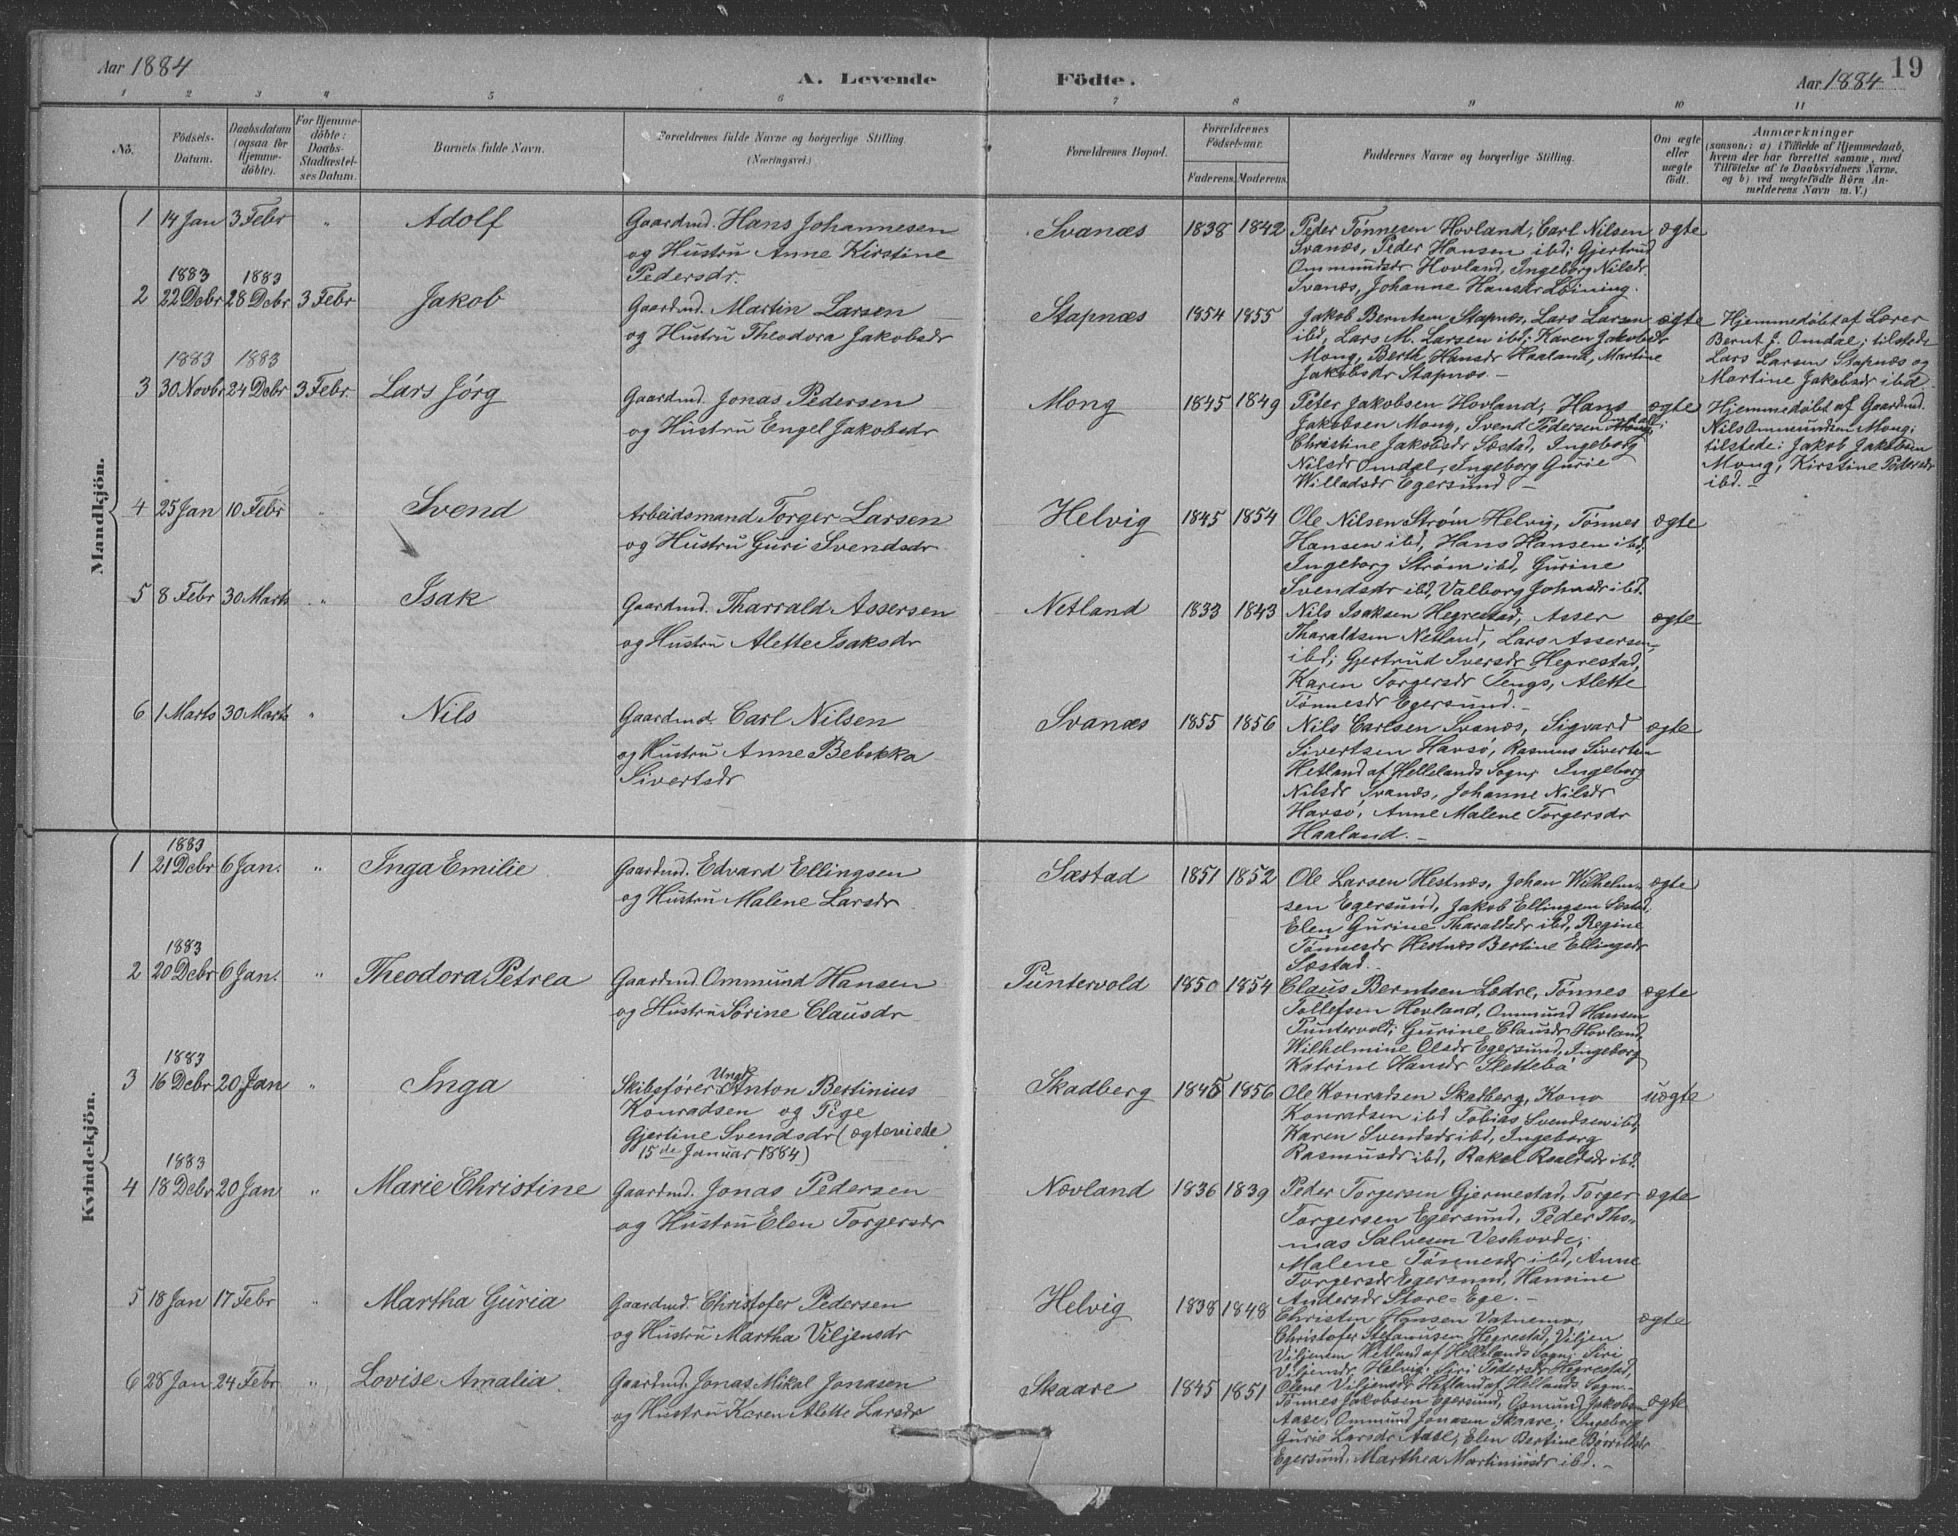 Aar 1884
A. Levende Födte.
19
Aar 1884
1 2 3 4 5 6 7 8 9 10 11
No.
Födsels-Datum.
Daabsdatum (ogsaa for Hjemme-döbte).
For Hjemme-döbte: Daabs-Stadfæstel-ses Datum.
Barnets fulde Navn.
Forældrenes fulde Navne og borgerlige Stilling.
(Næringsvei.)
Forældrenes Bopæl.
Forældrenes Födsels-aar.
Faderens. Moderens.
Faddernes Navne og borgerlige Stilling.
Om ægte eller uægte födt.
Anmærkninger
(saasom: a) i Tilfælde af Hjemmedaab,
hvem der har forrettet samme, med
Tilföielse af to Daabsvidners Navne,
og b) ved uægtefödte Börn An-
melderens Navn m. V.)
Mandkjön.
1 14 Jan 3 Febr " Adolf
Gaardmd. Hans Johannesen
og Hustru Anne Kirstine
Pedersdr.
Svanæs 1838 1842
Peder Tønnesen Hovland, Carl Nilsen
Svanæs, Peder Hansen ibd; Gjertrud
Ommundsdr Hovland, Ingeborg Nilsdr
Svanæs, Johanne Hansdr Leining.
ægte
1883 1883
2 22 Debr 28 Debr 3 Febr Jakob
Gaardmd. Martin Larsen
og Hustru Theodora Jakobsdr
Stapnæs 1854 1855
Jakob Berntsen Stapnæs, Lars Larsen
ibd, Lars M. Larsen ibd; Karen Jakobsdr
Mong, Berth. Hansdr Haaland, Martine
Jakobsdr Stapnæs. -
ægte
Hjemmedøbt af Lærer
Bernt J. Omdal; tilstede
Lars Larsen Stapnæs og
Martine Jakobsdr ibd.
1883 1883
3 30 Novbr 24 Debr 3 Febr. Lars Jörg
Gaardmd. Jonas Pedersen
og Hustru Engel Jakobsdr
Mong 1845 1849
Peter Jakobsen Hovland, Hans
Jakobsen Mong, Svend Pedersen Omdal;
Christine Jakobsdr Sæstad, Ingeborg
Nilsdr Omdal, Ingeborg Gurie
Willadsdr Egersund. -
ægte
Hjemmedøbt af Gaardmd.
Nils Ommundsen Mong;
tilstede: Jakob Jakobsen
Mong, Kirstine Pedersdr
ibd. -
4 25 Jan 10 Febr " Svend
Arbeidsmand Torger Larsen
og Hustru Guri Svendsdr
Helvig 1845 1854
Ole Nilsen Strøm Helvig, Tønnes
Hansen ibd, Hans Hansen ibd;
Ingeborg Strøm ibd, Gurine
Svendsdr ibd, Valborg Johnsdr ibd.
ægte
5 8 Febr 30 Marts " Isak
Gaardmd. Tharrald Assersen
og Hustru Alette Isaksdr
Netland 1833 1843
Nils Isaksen Hegrestad, Asser
Tharaldsen Netland, Lars Assersen
ibd; Gjertrud Iversdr Hegrestad,
Karen Torgersdr Tengs, Alette
Tønnesdr Egersund. -
ægte
6 1 Marts 30 Marts " Nils
Gaardmd. Carl Nilsen
og Hustru Anne Bebekka
Sivertsdr
Svanæs 1855 1856
Nils Carlsen Svanæs, Sigvard
Sivertsen Havsø, Rasmus Sivertsen
Hetland af Hellelands Sogn; Ingeborg
Nilsdr Svanæs, Johanne Nilsdr
Havsø, Anne Malene Torgersdr
Haaland. -
ægte
Kvindekjön.
1883
1 21 Debr 6 Jan. " Inga Emilie
Gaardmd. Edvard Ellingsen
og Hustru Malene Larsdr
Sæstad 1851 1852
Ole Larsen Hestnæs, Johan Wilhelm-
sen Egersund, Jakob Ellingsen Sæstad,
Elen Gurine Tharaldsdr ibd, Regine
Tønnesdr Hestnæs Bertine Ellingsdr
Sæstad. -
ægte
1883
2 20 Debr 6 Jan. " Theodora Petrea
Gaardmd. Ommund Hansen
og Hustru Sörine Clausdr
Puntervold 1850 1854
Claus Berntsen Lædre, Tønnes
Tollefsen Hovland, Ommund Hansen
Puntervold; Gurine Clausdr Hovland,
Wilhelmine Olsdr Egersund, Ingeborg
Katrine Hansdr Slettebø
ægte
1883
3 16 Debr 20 Jan " Inga
Skibsfører Ungk. Anton Bertinius
Konradsen og Pige
Gjertine Svendsdr (ægteviede
15de Januar 1884)
Skadberg 1845 1856
Ole Konradsen Skadberg, Kono
Konradsen ibd Tobias Svendsen ibd,
Karen Svendsdr ibd, Ingeborg
Rasmusdr ibd, Rakel Roaldsdr ibd.
uægte
1883
4 18 Debr 20 Jan " Marie Christine
Gaardmd. Jonas Pedersen
og Hustru Elen Torgersdr
Nævland 1836 1839
Peder Torgersen Gjermestad, Torger
Torgersen Egersund, Peder Tho-
mas Salvesen Veshovde;
Malene Tønnesdr ibd, Anne
Torgersdr Egersund, Hansine
Andersdr Store-Ege. -
ægte
5 18 Jan 17 Febr " Martha Guria
Gaardmd. Christofer Pedersen
og Hustru Martha Viljensdr
Helvig 1838 1848
Christen Hansen Vatnemo,
Christofer Stefanusen Hegrestad, Viljen
Viljensen Hetland af Hellelands Sogn; Siri
Viljensdr Helvig, Siri Pedersdr Hegrestad,
Olene Viljensdr Hetland af Hellands Sogn. -
ægte
6 28 Jan 24 Febr " Lovise Amalia
Gaardmd. Jonas Mikal Jonasen
og Hustru Karen Alette Larsdr
Skaare 1845 1851
Tønnes Jakobsen Egersund, Osmund Jakobsen
Aase, Ommund Jonasen Skaare; Ingeborg
Gurie Larsdr Aase, Elen Bertine Børrildsdr
Egersund, Marthea Martiniusdr ibd. -
ægte